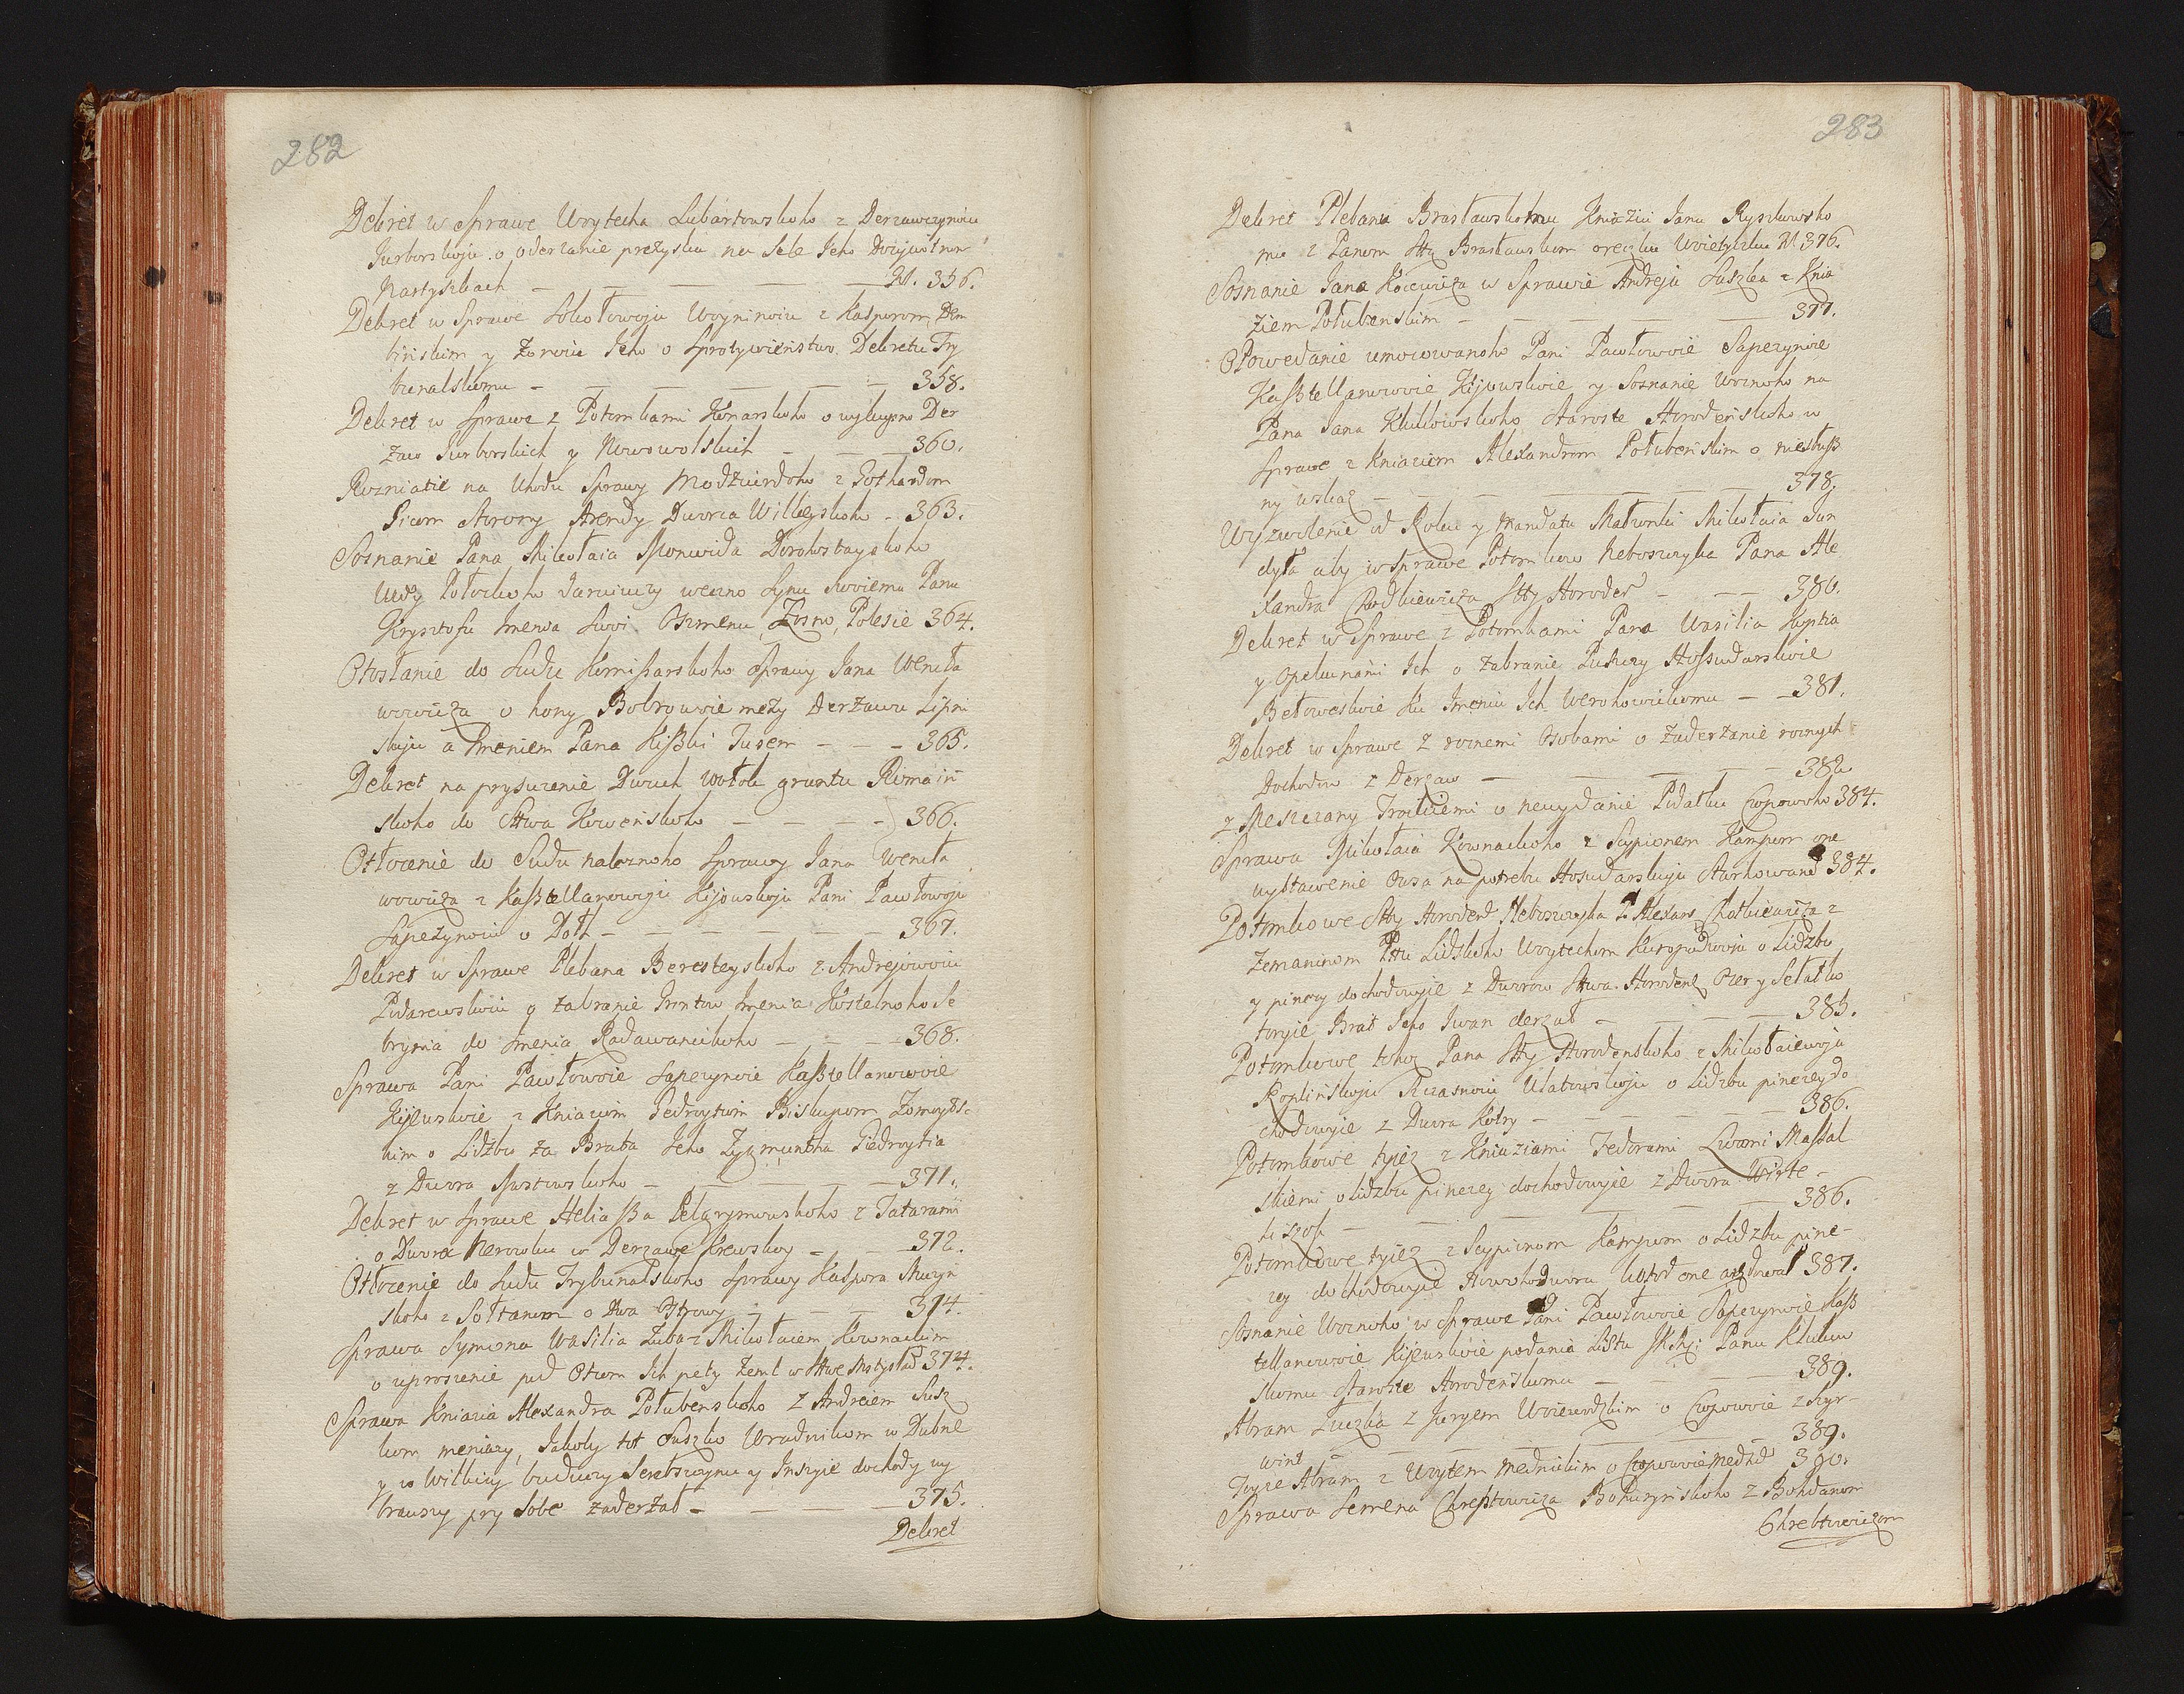 282
Dekret w Sprawe Woytecha Lubartowskoho z Derzawczynoiu
Jurborskoju o oderzanie prezysku na Sele Jeho Dożywotnom
Jłartyszkach — — — — Nr. 356.
Dekret w Sprawe Sokołowoju Woyninoiu z Kasporom Dem
binskim y Żonoiu Jeho o Sprotywieństwo Dekretu Try
bunalskomu — — — — 358.
Dekret w Sprawe z Potomkami Konarskoho o wykupno Der
zaw Jurborskich y Nowowolskich — — 360.
Rozniatie na Uhodu Sprawy Modzwirdoho z Gothardom
Sicom Storony Arendy Dworca Wilkeyskoho — 363.
Soznanie Pana Mikołaia Monwida Dorohostayskoho
Wdy Połockoho daruiuczy weczno Synu Swoiemu Panu
Krysztofu Imenia Swoi Oszmenu, Zosno, Polesie 364.
Otosłanie do Sudu Komißarskoho Sprawy Jana Wencła
wowicza o hony Bobrowoie mezy Derżawu Lipni
skuju a Imeniem Pana Kißki Jwem — — — 365.
Dekret na prysuzenie Dwuch wołok gruntu Romain
skoho do Sttwa Kowenskoho — — — — 366.
Otłozenie do Sudu należnoho Sprawy Jana Wencła
wowicza z Kaßtellanowoju Kijowskoju Pani Pawłowoju
Sapezynoiu o Dołh — — — — — 367.
Dekret w Sprawe Plebana Beresteyskoho z Andrejowoiu
Pidarewskoiu o zabranie Grontow Imenia Kostelnoho Se
brynia do Imenia Radawanickoho — — — 368.
Sprawa Pani Pawłowoie Sapezynoie Kaßtellanowoie
Kijewskoie z Kniazem Gedroytom Biskupom Zomoyts-
kim o Lidzbu za Brata Jeho Zygmuntha Giedroytia
z Dwora Mostowskoho — — — — 371.
Dekret w Sprawe Heliaßa Pelgrymowskoho z Tatarami
o Dworec Nerowku w Derzawe Krewskoy — — 372.
Otłozenie do Sudu Trybunalskoho Sprawy Kaspora Muzyn
skoho z Sołtanom o Dwa Ostrowy — — — 374.
Sprawa Symona Wasilia Zuba z Mikołaiem Kownackim
o uproszenie pod Otcom Ich pety Zeml w Sttwe Mstysław 374.
Sprawa Kniazia Alexandra Połubenskoho z Andreiem Susz
kom meniaczy, Jakoby tot Suszko Uradnikom w Dubne
y w Wilkiey buduczy Serebszczynu y Inszyie dochody wy
brauszy pry Sobe zaderzał — — — 375.
Dekret
283
Dekret Plebanu Brasławskomu Kniaziu Janu Ryszkowsko
mu z Panom Stty Brasławskom oreczku Woietyszku Nr 376.
Soznanie Jana Kociewicza w Sprawie Andreja Suszka z Knia
ziem Połubenskim — — — — — 377.
Opowedanie umocowanoho Pani Pawłowoie Sapezynoie
Kaßtellanowoie Kijowskoie y Soznanie woznoho na
Pana Jana Klukowskoho Staroste Horodeńskoho w
Sprawe z Kniaziem Alexandrom Połubeńskim o niesłuß
ny wskaz — — — — — — — 378.
Wyzwolenie od Roku y mandatu Małzonki Mikołaia Jun
dyła aby w Sprawe Potomkow Neboszczyka Pana Ale
xandra Chodkiewicza Stty Horoden — — — 380.
Dekret w Sprawe z Potomkami Pana Wasilia Koptia
y Opekunami Ich o zabranie Puszczy Hossudarskoie
Bełoweskoie Ku Imeniu Ich Werchowickomu — — 381.
Dekret w Sprawe z roznemi Osobami o zaderzanie roznych
dochodow z Derzaw — — — — — 382
z Meszczany Trockiemi o newydanie Podatku Czopowoho 384.
Sprawa Mikołaia Kownackoho z Scypionem Kampom one
wystawenie Owsa na potrebu Hosudarskuju Sturhowano 384.
Potomkowe Stty Horoden Neboszczyka P. Alexan Chodkiewicza z
Zemaninom Pttu Lidskoho Woytechom Kuropadwoju o Lidzbu
y pinezy dochodowyie z Dworow Sttwa Horodens Ozer y Sałatko
toryie Brat Jeho Iwan derzał — — — — 385.
Potomkowe tohoz Pana Stty Horodenskoho z Mikołaiewoju
Koplinskoju Rczasnoiu Ulatowskoju o Lidzbu pinezey do
chodowyie z Dwora Kotry — — — — — 386.
Potomkowe tyiez z Kniaziami Fedorami Lwowi Maßal
skiemi o lidzbu pinezey dochodowyie z Dwora Wirte-
liszok — — — — — — — 386.
Potomkowe tyiez z Scypionom Kampom o Lidzbu pine-
zey dochodowyie Nowohodwora kotoroe arendowal 387.
Soznanie Woznoho w Sprawe Pani Pawłowoie Sapezynoie Kaß
tellanowoie Kijewskoie podania Listu JKMci Panu Kluko
skomu Staroste Horodenskomu — — — 389.
Abram Juczka z Juryem Woiewodzkim o Czopowoie z Kyr-
wint — — — — — — — 389.
Toyze Abram z Woytem Mednickim o Czopowoie Mednick 390.
Sprawa Semena Chreptowicza Bohurynskoho z Bohdanom
Chrebtowiczom